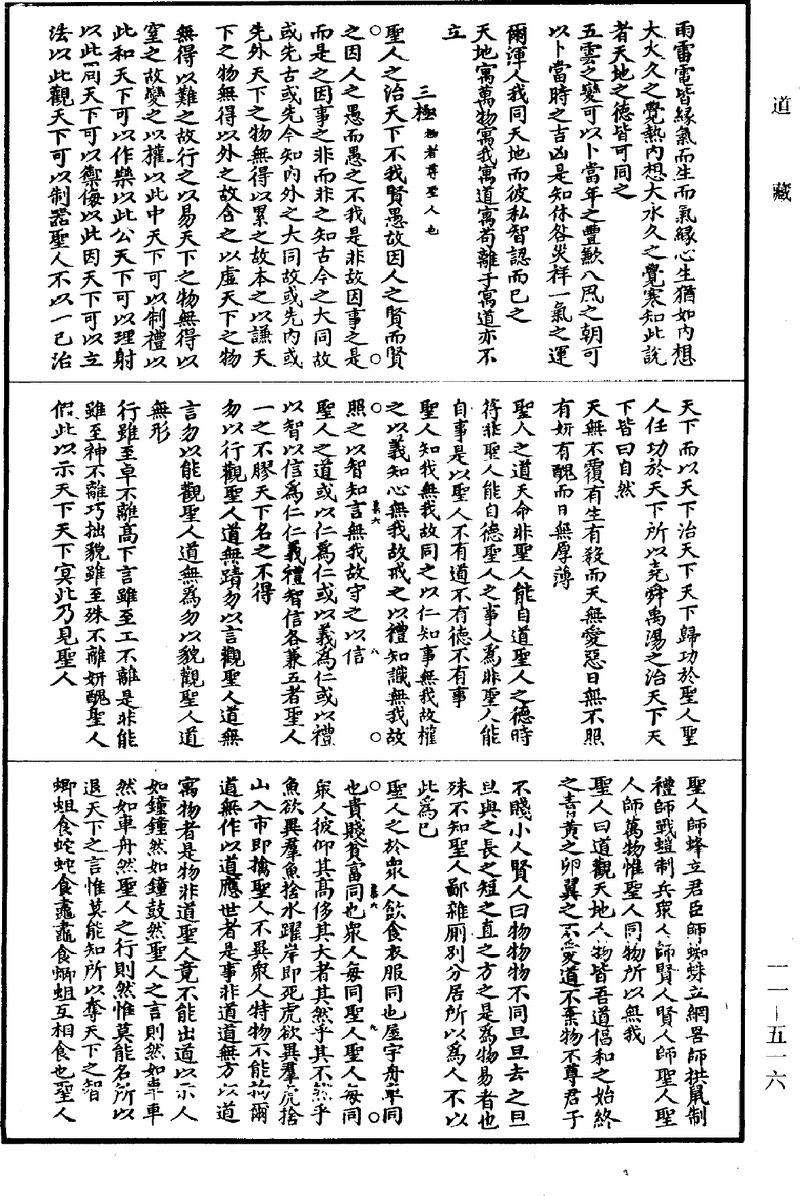 道藏
雨雷電皆緣氣而生而氣緣心生猶如內想
大火久之覺熱內想大水久之覺寒知此說
者天地之德皆可同之
五雲之變可以卜當年之豐歉八風之朝可
以卜當時之吉凶是知休咎災祥一氣之運
爾渾人我同天地而彼私智認而已之
天地寓萬物寓我寓道寓苟離于寓道亦不
立
三極極者尊聖人也
聖人之治天下不我賢愚故因人之賢而賢
之因人之愚而愚之不我是非故因事之是
而是之因事之非而非之知古今之大同故
或先古或先今知內外之大同故或先內或
先外天下之物無得以累之故本之以謙天
下之物無得以外之故含之以虛天下之物
無得以難之故行之以易天下之物無得以
窒之故變之以權以此中天下可以制禮以
此和天下可以作樂以此公天下可以理財
以此周天下可以禦侮以此因天下可以立
法以此觀天下可以制器聖人不以一己治
天下而以天下治天下天下歸功於聖人聖
人任功於天下所以堯舜禹湯之治天下天
下皆曰自然
天無不覆有生有殺而天無愛惡日無不照
有妍有醜而日無厚薄
聖人之道天命非聖人能自道聖人之德時
符非聖人能自德聖人之事人為非聖人能
自事是以聖人不有道不有德不有事
聖人知我無我故同之以仁知事無我故權
之以義知心無我故戒之以禮知識無我故
照之以智知言無我故守之以信
聖人之道或以仁為仁或以義為仁或以禮
以智以信為仁仁義禮智信各兼五者聖人
一之不膠天下名之不得
勿以行觀聖人道無蹟勿以言觀聖人道無
言勿以能觀聖人道無為勿以貌觀聖人道
無形
行雖至卓不離高下言雖至工不離是非能
雖至神不離巧拙貌雖至殊不離妍醜聖人
假此以示天下天下冥此乃見聖人
聖人師蜂立君臣師蜘蛛立網罟師拱鼠制
禮師戰螘制兵眾人師賢人賢人師聖人聖
人師萬物惟聖人同物所以無我
聖人曰道觀天地人物皆吾道倡和之始終
之青黃之卵翼之不愛道不棄物不尊君子
不賤小人賢人曰物物物不同旦旦去之旦
旦與之長之短之直之方之是為物易者也
殊不知聖人鄙雜廁別分居所以為人不以
此為己
聖人之於眾人飲食衣服同也屋宇舟車同
也貴賤貧富同也眾人每同聖人聖人每同
眾人彼仰其高侈其大者其然乎其不然乎
魚欲異羣魚捨水躍岸即死虎欲異羣虎捨
山入市即擒聖人不異眾人特物不能拘爾
道無作以道應世者是事非道道無方以道
寓物者是物非道聖人竟不能出道以示人
如鐘鐘然如鐘鼓然聖人之言則然如車車
然如車舟然聖人之行則然惟莫能名所以
退天下之言惟莫能知所以奪天下之智
蝍蛆食蛇蛇食鼃鼃食蝍蛆互相食也聖人
一一—五一六